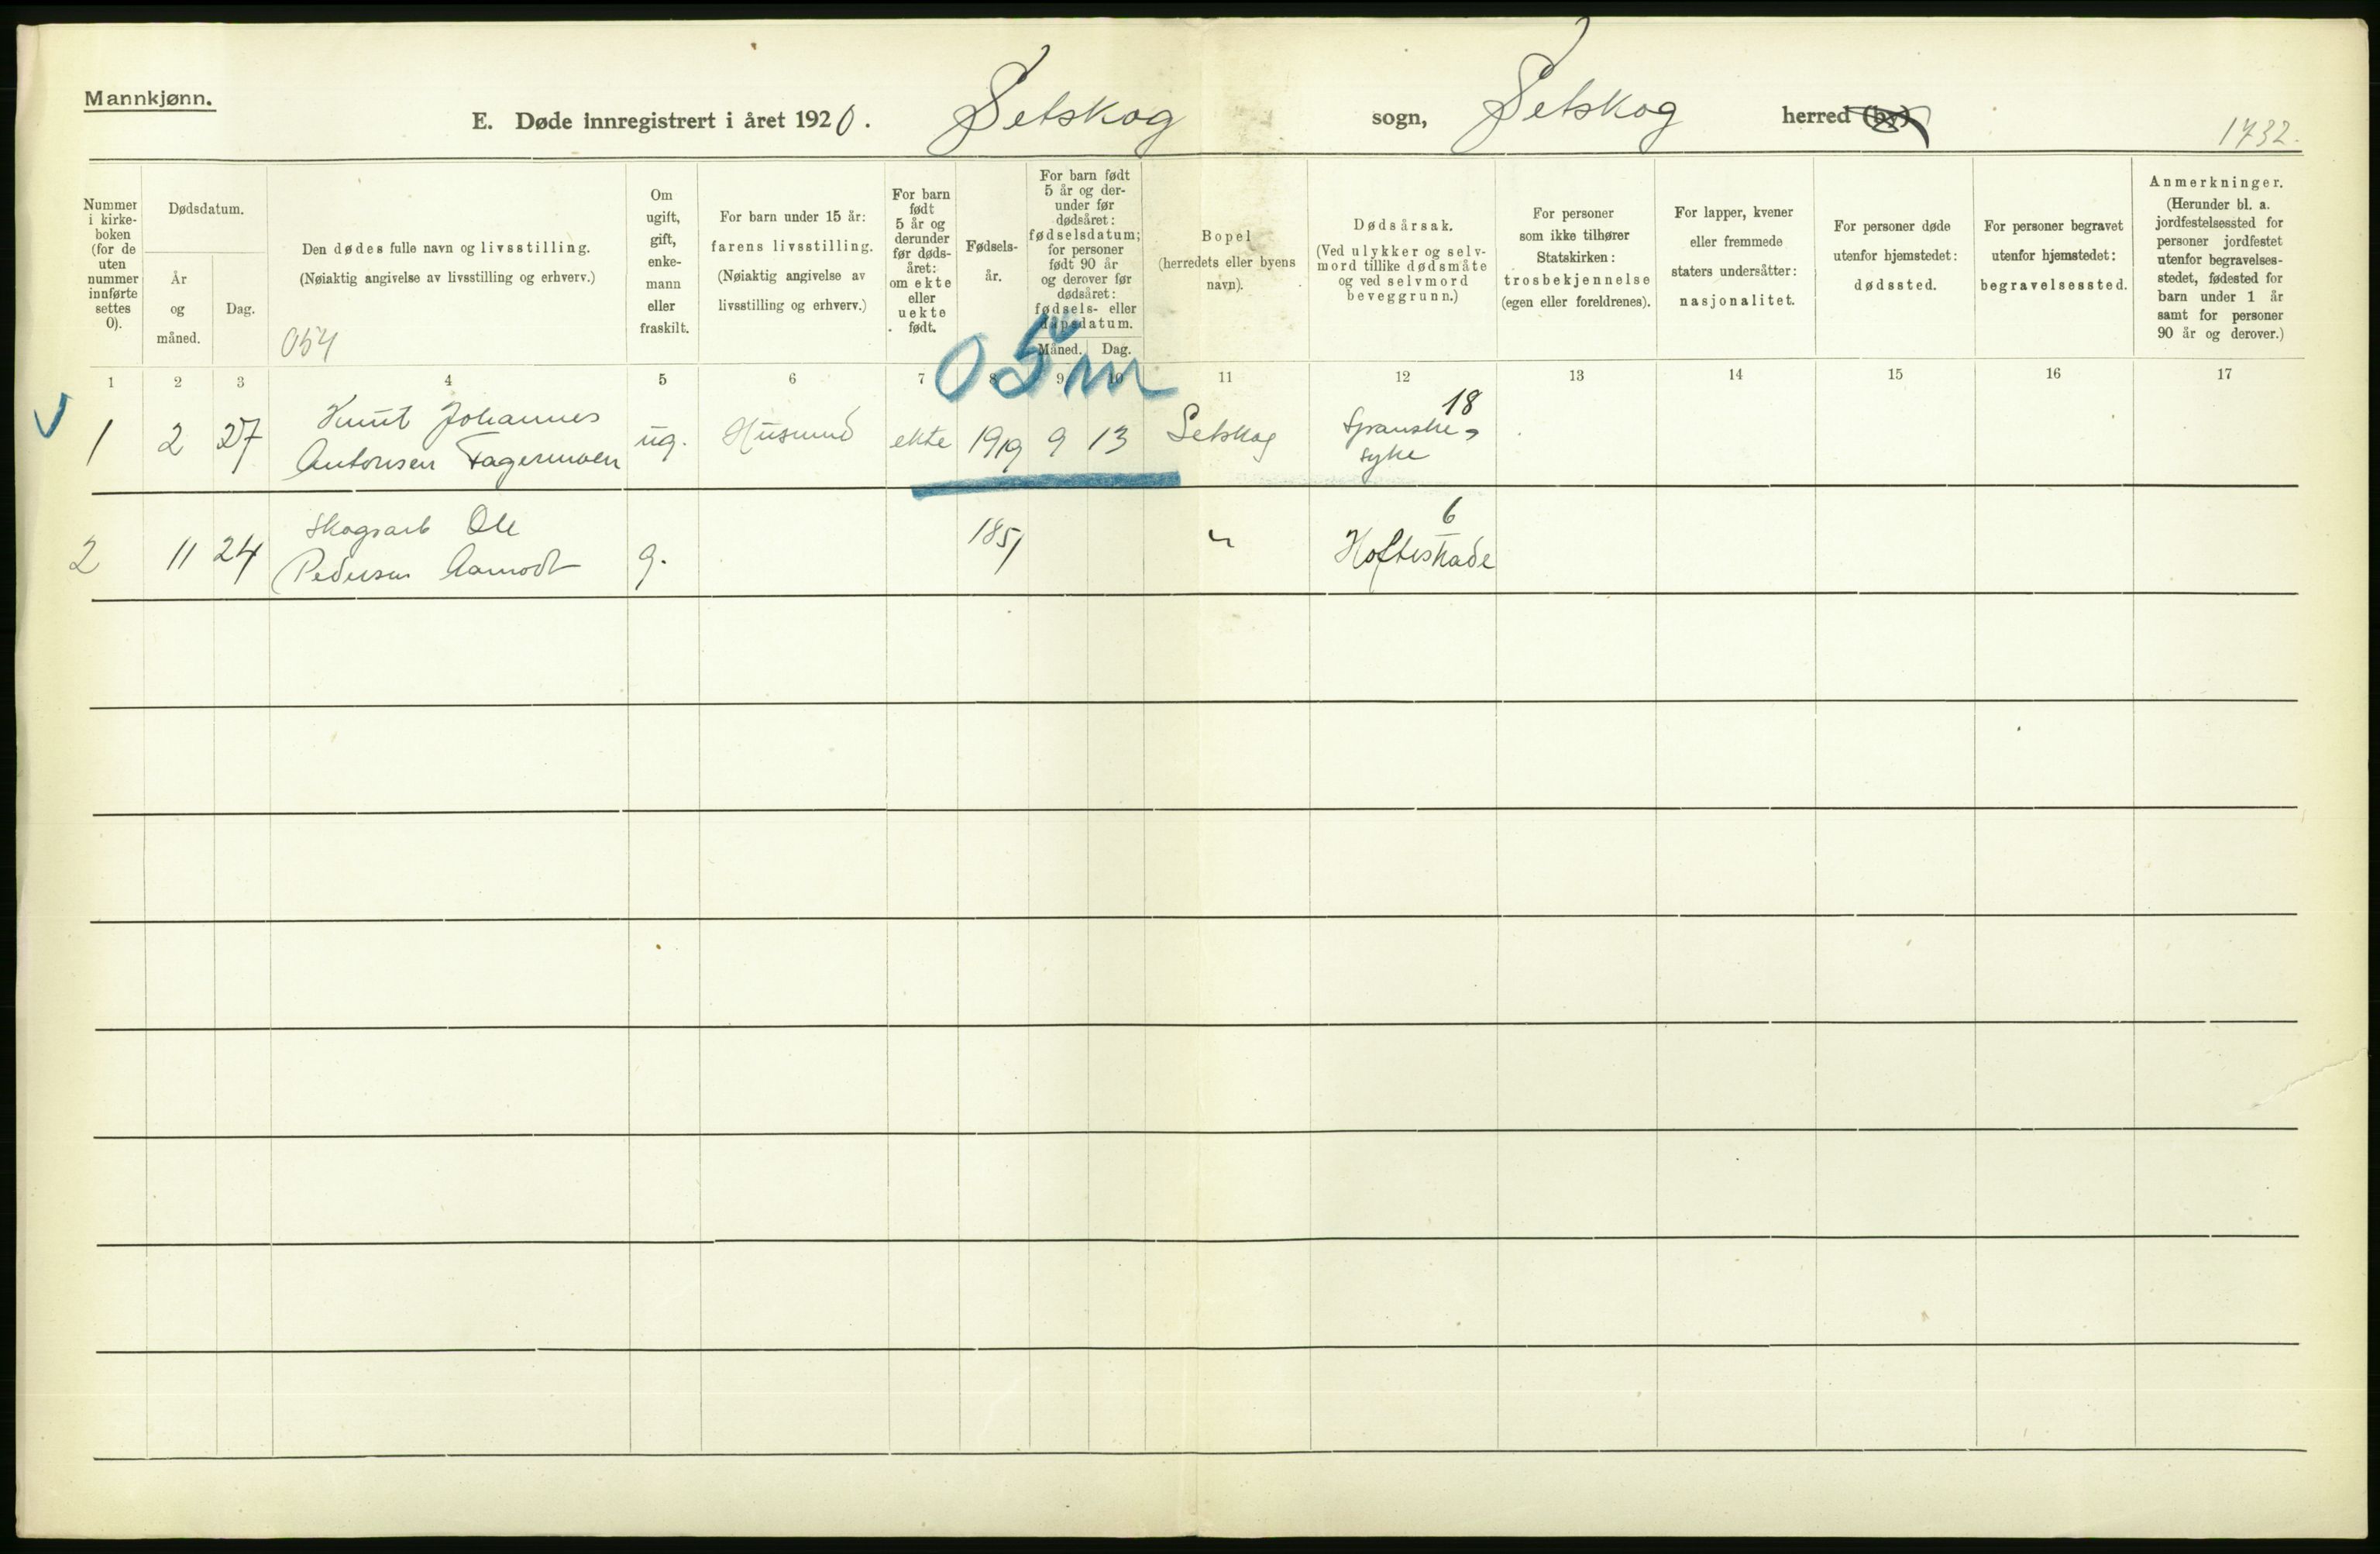 Mannkjønn.
E. Døde innregistrert i året 1920. Setskog sogn, Setskog herred (by)
1732.
Nummer i kirke- boken (for de uten nummer innførte settes 0).
Dødsdatum.
År og måned.
Dag.
Den dødes fulle navn og livsstilling.
(Nøiaktig angivelse av livsstilling og erhverv.)
054
Om ugift, gift, enke- mann eller fraskilt.
For barn under 15 år:
farens livsstilling.
(Nøiaktig angivelse av
livsstilling og erhverv.)
For barn født 5 år og derunder før døds- året: om ekte eller uekte født.
Fødsels- år.
For barn født 5 år og der- under før dødsåret: fødselsdatum; for personer født 90 år og derover før dødsåret: fødsels- eller dåpsdatum.
Måned. Dag.
Bopel
(herredets eller byens
navn).
Dødsårsak.
(Ved ulykker og selv-
mord tillike dødsmåte
og ved selvmord
beveggrunn.)
For personer
som ikke tilhører
Statskirken:
trosbekjennelse
(egen eller foreldrenes).
For lapper, kvener
eller fremmede
staters undersåtter:
nasjonalitet.
For personer døde
utenfor hjemstedet:
dødssted.
For personer begravet
utenfor hjemstedet:
begravelsessted.
Anmerkninger.
(Herunder bl. a.
jordfestelsessted for
personer jordfestet
utenfor begravelses-
stedet, fødested for
barn under 1 år
samt for personer
90 år og derover.)
1 2 3 4 5 6 7 8 9 10 11 12 13 14 15 16 17
05m
1 2 27 Knut Johannes
Antonsen Fagermoen ug. Husmd ekte 1919 9 13 Setskog Spanske- 18
syke
2 11 24 Skogsarb Ole
Pedersen Aamodt g. 1851 " 6
Hofteskade